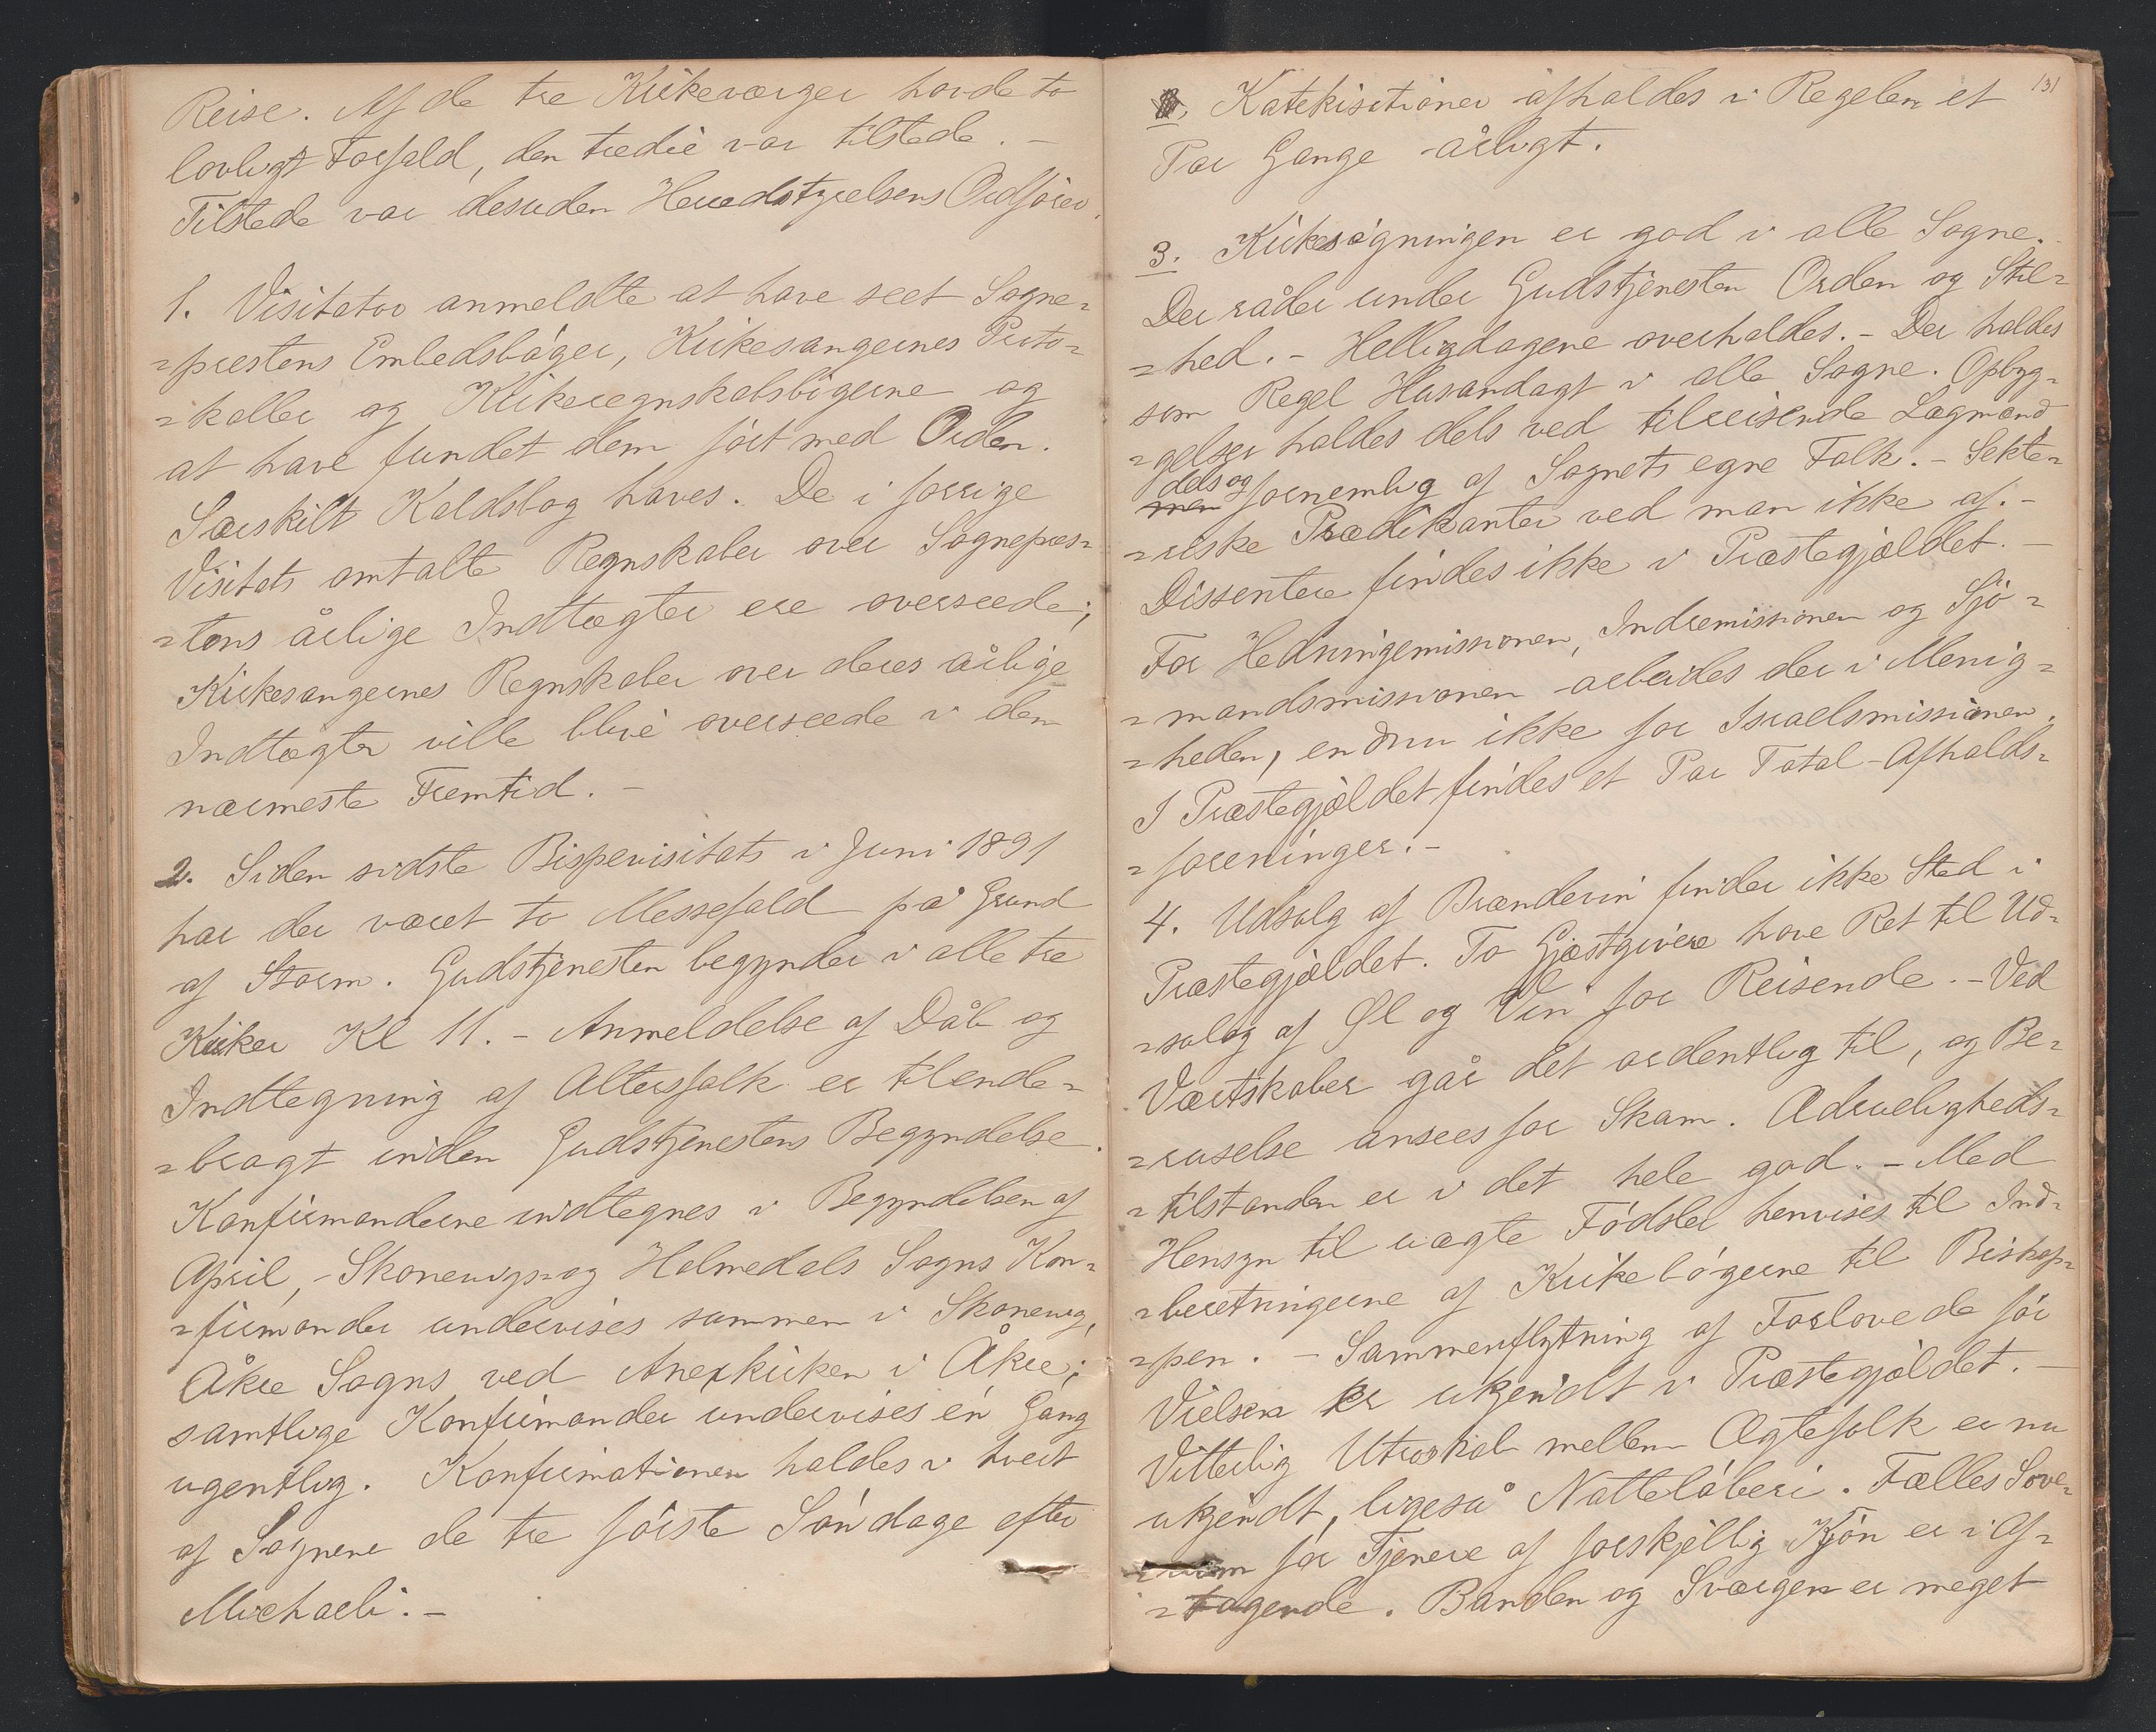 Reise. Af de tre Kirkeværger havde to
lovligt Forfald, den tredie var tilstede. -
Tilstede var desuden Herredstyrelsens Ordfører.
1. Visitator anmeldte at have seet Sogne=
=prestens Embedsbøger, Kirkesangernes Proto=
=koller og Kirkeregnskabsbøgerne og
at have fundet dem ført med Orden.
Særskilt Kaldsbog haves. De i forrige
Visitats omtalte Regnskaber over Sognepres=
=tens årlige Indtægter ere overseede;
Kirkesangernes Regnskaber over deres årlige
Indtægter ville blive overseede i den
nærmeste Fremtid. -
2. Siden sidste Bispevisitats i Juni 1891
har der været to Messefald på Grund
af Storm. Gudstjenesten begynder i alle tre
Kirker Kl 11. - Anmeldelse af Dåb og
Indtegning af Altersfolk er tilende=
=bragt inden Gudstjenestens Begyndelse.
Konfirmanderne indtegnes i Begyndelsen af
April, - Skonevigs= og Holmedals Sogns Kon=
=firmander undervises sammen i Skonevig,
Åkre Sogns ved Anexkirken i Åkre;
samtlige Konfirmander undervises én Gang
ugentlig. Konfirmationen holdes i hvert
af Sognene de tre første Søndage efter
Michaeli. -
131
Katekisationer afholdes i Regelen et
Par Gange årligt.
3. Kirkesøgningen er god i alle Sogne.
Der råder under Gudstjenesten Orden og Stil=
=hed. - Helligdagene overholdes. - Der holdes
som Regel Husandagt i alle Sogne. Opbyg=
=gelser holdes dels ved tilreisende Lægmænd
dels og
men fornemlig af Sognets egne Folk. - Sekte=
=riske Prædikanter ved man ikke af. -
Dissentere findes ikke i Præstegjældet. -
For Hedningemissionen, Indremissionen og Sjø=
=mandsmissionen arbeides der i Menig=
=heden, endnu ikke for Israelsmissionen.
I Præstegjældet findes et Par Total-Afholds=
=foreninger. -
4. Udsalg af Brændevin finder ikke Sted i
Præstegjældet. To Gjæstgivere have Ret til Ud=
=salg af Øl og Vin for Reisende. - Ved
Værtskaber går det ordentlig til, og Be=
=ruselse ansees for Skam. Ædrueligheds=
=tilstanden er i det hele god. - Med
Hensyn til uægte Fødsler henvises til Ind=
=beretningerne af Kirkebøgerne til Biskop=
=pen. - Sammenflytning af Forlovede før
Vielsen er ukjendt i Præstegjældet. -
Vitterlig Utroskab mellem Ægtefolk er nu
ukjendt, ligeså Natteløberi. Fælles Sove=
=rum for Tjenere af forskjellig Kjøn er i Af=
=tagende. Banden og Sværgen er meget